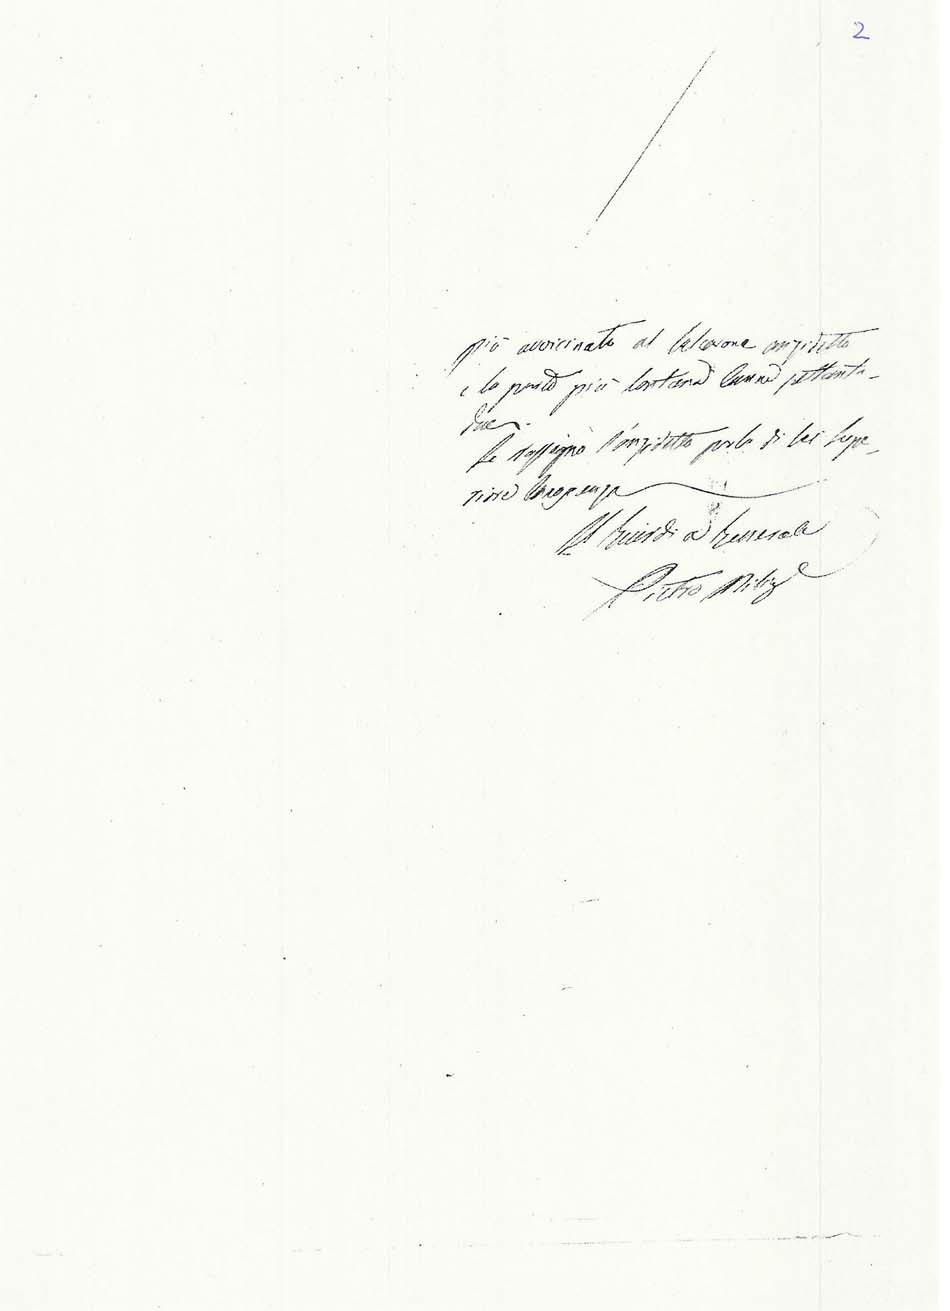 2
più avvicinato al Calcarone anzidetto
e la parte più lontana Canne settanta-
due.
Le rassegno l'anzidetto per la di lei Supe-
riore
Il Guardia Generale
Pietro